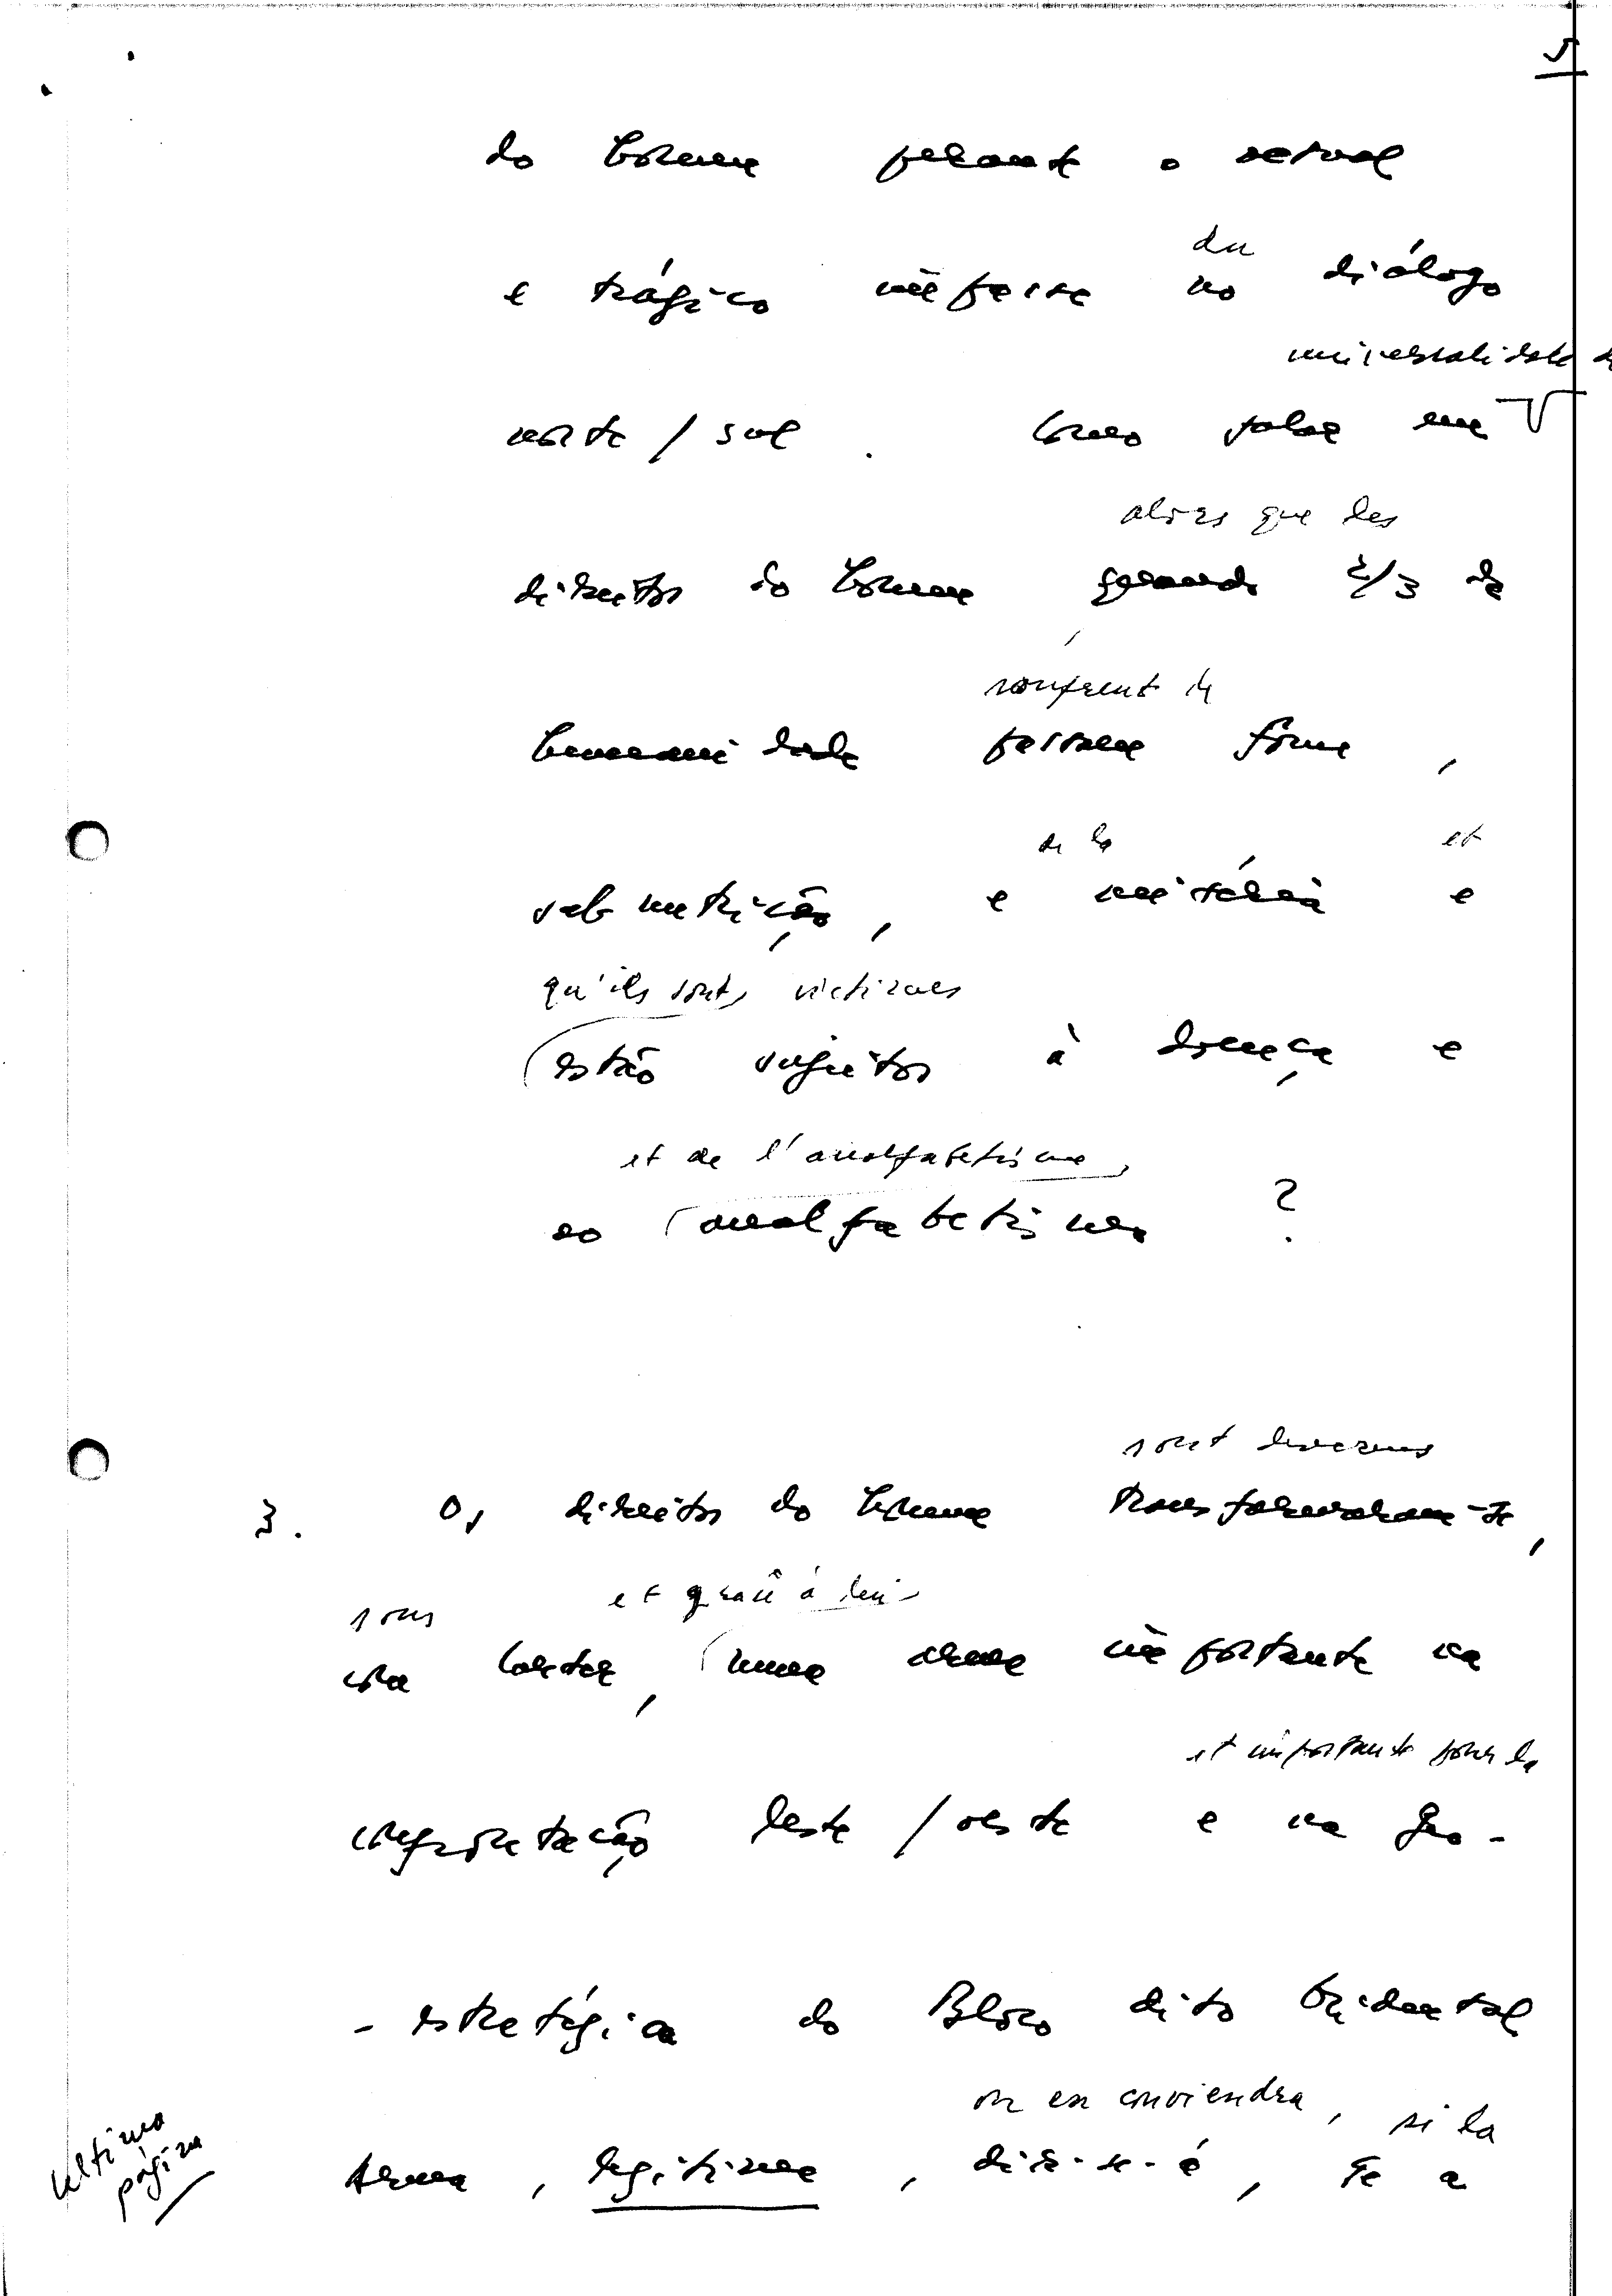 5
do homem perante o actual
du
e trágico impasse no diálogo
universalidade d
norte / sul . Como falar em
alors que les
direitos do homem quando 2/3 da
souffrent de
humanidade passam fome,
de la et
sub nutrição, e miséria e
qu'ils sont, victimes
estão sujeitos à doença e
et de l'analfabetisme,
ao analfabetismo ?
sont devenus
3. Os direitos do homem transformaram-se,
sous et grâce à
com Carter, numa arma importante na
et importante pour la
negociação leste / oeste e na geo-
- estratégica do Bloco dito Ocidental
on en conviendra, si la
Arma, legítima, dir-se-á, se a
última
página